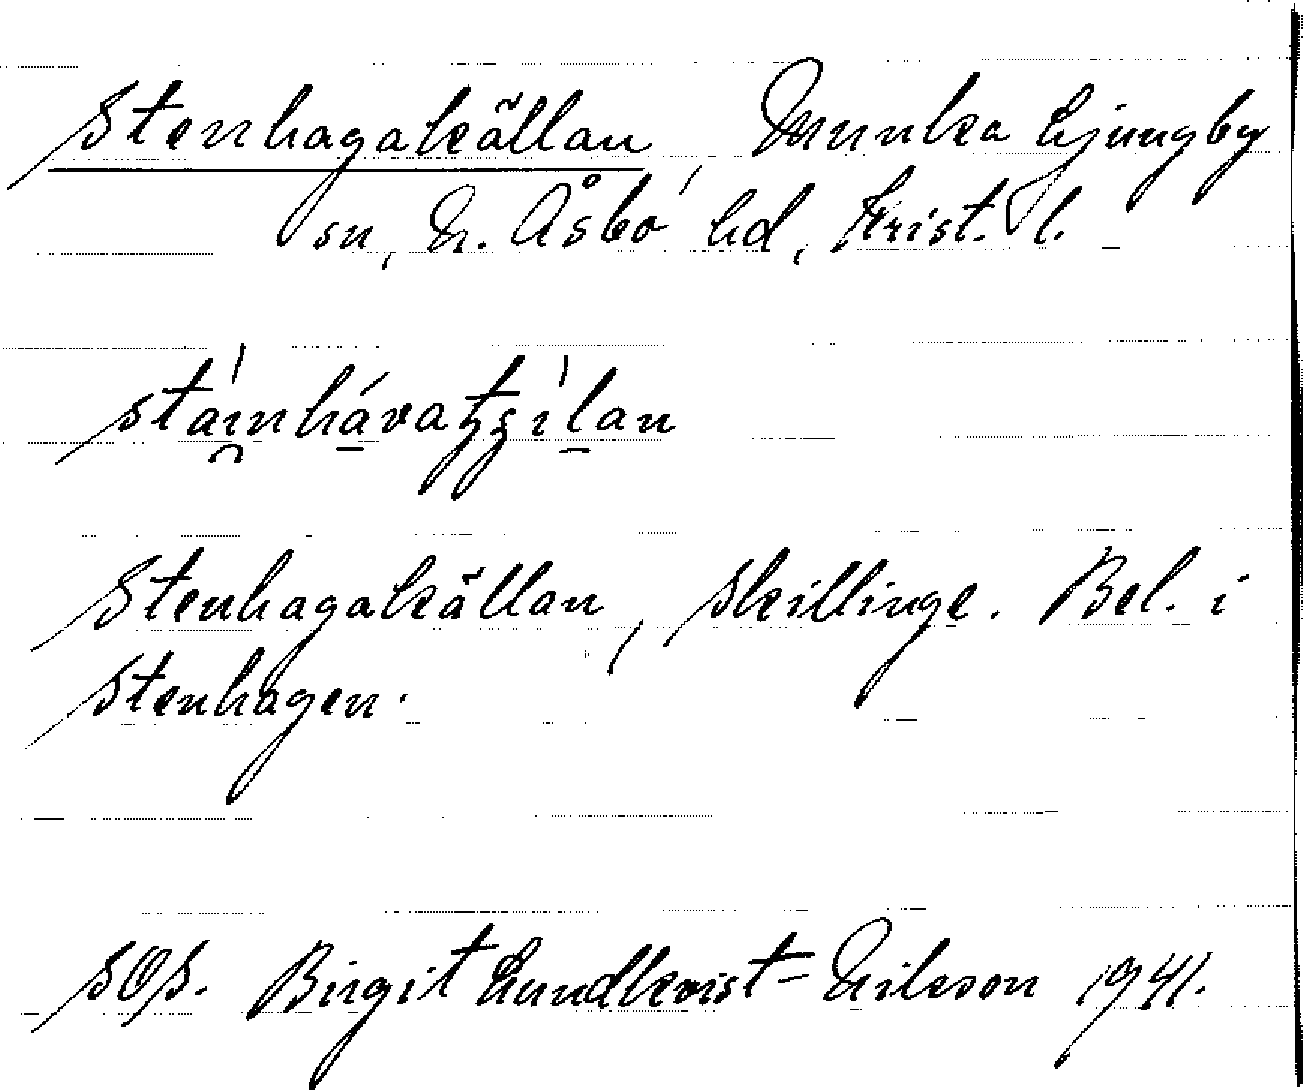 Stenhagakällan, Munka Ljungby
sn, N. Åsbo hd, Krist. l.
stáinhávatʒílan
Stenhagakällan, Skillinge. Bel. i
Stenhagen.
SOS. Birgit Lundkvist-Nilsson 1941.